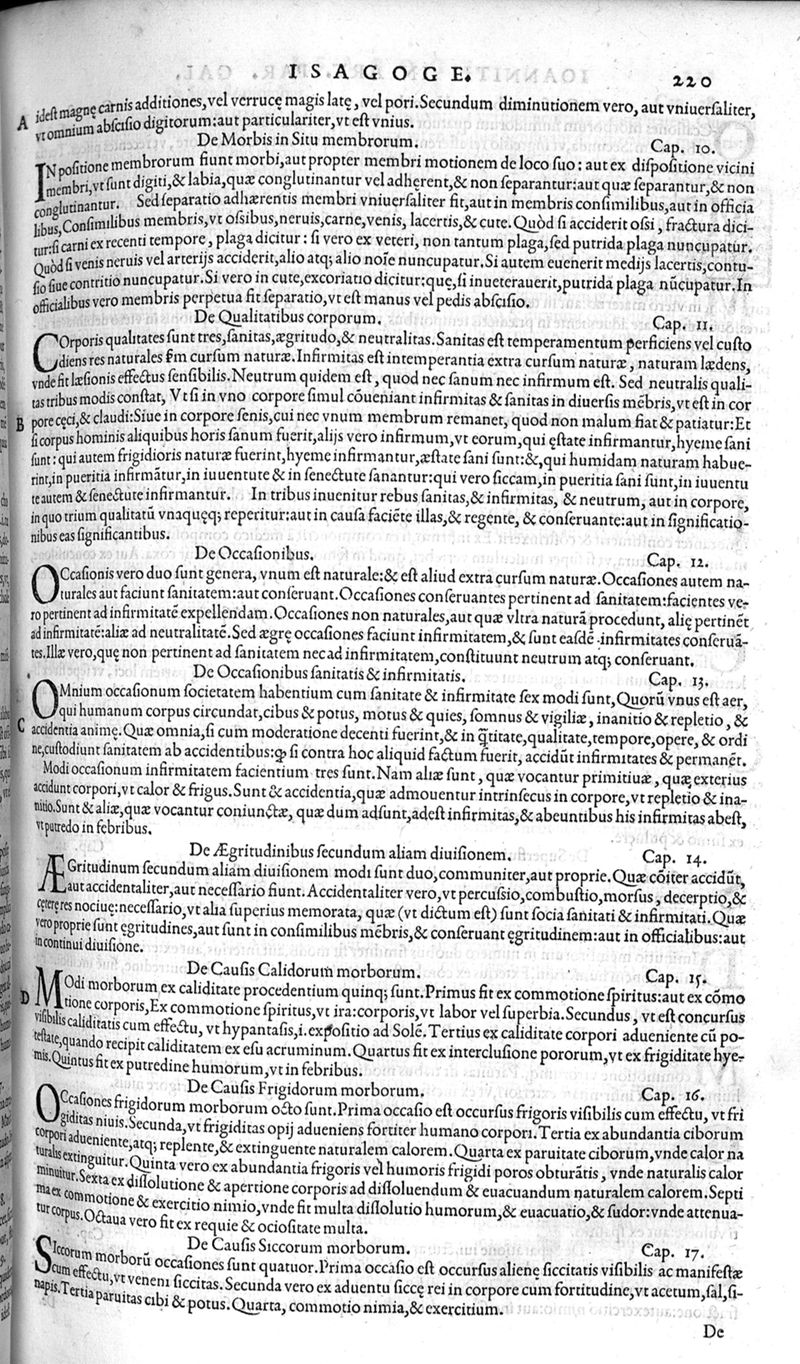 ISAGOGE.
220
A
idest magnę carnis additiones, vel verrucę magis latę, vel pori. Secundum diminutionem vero, aut vniuersaliter,
vt omnium abscisio digitorum: aut particulariter, vt est vnius.
De Morbis in Situ membrorum. Cap. 10.
IN positione membrorum fiunt morbi, aut propter membri motionem de loco suo: aut ex dispositione vicini
membri, vt sunt digiti, & labia, quæ conglutinantur vel adhęrent, & non separantur: aut quæ separantur, & non
conglutinantur. Sed separatio adhærentis membri vniuersaliter fit, aut in membris consimilibus, aut in officia
libus, Consimilibus membris, vt ossibus, neruis, carne, venis, lacertis, & cute. Quòd si acciderit ossi, fractura dici-
tur: si carni ex recenti tempore, plaga dicitur: si vero ex veteri, non tantum plaga, sed putrida plaga nuncupatur.
Quòd si venis neruis vel arterijs acciderit, alio atq; alio noīe nuncupatur. Si autem euenerit medijs lacertis, contu-
sio siue contritio nuncupatur. Si vero in cute, excoriatio dicitur: quę, si inueterauerit, putrida plaga nūcupatur. In
officialibus vero membris perpetua fit separatio, vt est manus vel pedis abscisio.
De Qualitatibus corporum. Cap. 11.
COrporis qualitates sunt tres, sanitas, ægritudo, & neutralitas. Sanitas est temperamentum perficiens vel custo
diens res naturales s̄m cursum naturæ. Infirmitas est intemperantia extra cursum naturæ, naturam lædens,
vnde fit læsionis effectus sensibilis. Neutrum quidem est, quod nec sanum nec infirmum est. Sed neutralis quali-
tas tribus modis constat, Vt si in vno corpore simul cōueniant infirmitas & sanitas in diuersis mēbris, vt est in cor
B
pore cęci, & claudi: Siue in corpore senis, cui nec vnum membrum remanet, quod non malum fiat & patiatur: Et
si corpus hominis aliquibus horis sanum fuerit, alijs vero infirmum, vt eorum, qui ęstate infirmantur, hyeme sani
sunt: qui autem frigidioris naturæ fuerint, hyeme infirmantur, æstate sani sunt: &, qui humidam naturam habue-
rint, in pueritia infirmātur, in iuuentute & in senectute sanantur: qui vero siccam, in pueritia sani sunt, in iuuentu
te autem & senectute infirmantur. In tribus inuenitur rebus sanitas, & infirmitas, & neutrum, aut in corpore,
in quo trium qualitatū vnaquęq; reperitur: aut in causa faciēte illas, & regente, & conseruante: aut in significatio-
nibus eas significantibus.
De Occasionibus. Cap. 12.
OCcasionis vero duo sunt genera, vnum est naturale: & est aliud extra cursum naturæ. Occasiones autem na-
turales aut faciunt sanitatem: aut conseruant. Occasiones conseruantes pertinent ad sanitatem: facientes ve-
ro pertinent ad infirmitatē expellendam. Occasiones non naturales, aut quæ vltra naturā procedunt, alię pertinēt
ad infirmitatē: aliæ ad neutralitatē. Sed ægrę occasiones faciunt infirmitatem, & sunt easdē infirmitates conseruā-
tes. Illæ vero, quę non pertinent ad sanitatem nec ad infirmitatem, constituunt neutrum atq; conseruant.
De Occasionibus sanitatis & infirmitatis. Cap. 13.
OMnium occasionum societatem habentium cum sanitate & infirmitate sex modi sunt, Quorū vnus est aer,
qui humanum corpus circundat, cibus & potus, motus & quies, somnus & vigiliæ, inanitio & repletio, &
C
accidentia animę. Quæ omnia, si cum moderatione decenti fuerint, & in q̄titate, qualitate, tempore, opere, & ordi
ne, custodiunt sanitatem ab accidentibus: ꝙ si contra hoc aliquid factum fuerit, accidūt infirmitates & permanēt.
Modi occasionum infirmitatem facientium tres sunt. Nam aliæ sunt, quæ vocantur primitiuæ, quæ exterius
accidunt corpori, vt calor & frigus. Sunt & accidentia, quæ admouentur intrinsecus in corpore, vt repletio & ina-
nitio. Sunt & aliæ, quæ vocantur coniunctæ, quæ dum adsunt, adest infirmitas, & abeuntibus his infirmitas abest,
vt putredo in febribus.
De Ægritudinibus secundum aliam diuisionem. Cap. 14.
ÆGritudinum secundum aliam diuisionem modi sunt duo, communiter, aut proprie. Quæ cōiter accidūt,
aut accidentaliter, aut necessario fiunt. Accidentaliter vero, vt percussio, combustio, morsus, decerptio, &
cęterę res nociuę: necessario, vt alia superius memorata, quæ (vt dictum est) sunt socia sanitati & infirmitati. Quæ
vero proprie sunt ęgritudines, aut sunt in consimilibus mēbris, & conseruant ęgritudinem: aut in officialibus: aut
in continui diuisione.
De Causis Calidorum morborum. Cap. 15.
D
MOdi morborum ex caliditate procedentium quinq; sunt. Primus fit ex commotione spiritus: aut ex cōmo
tione corporis, Ex commotione spiritus, vt ira: corporis, vt labor vel superbia. Secundus, vt est concursus
visibilis caliditatis cum effectu, vt hypantasis, i. expositio ad Solē. Tertius ex caliditate corpori adueniente cū po-
testate, quando recipit caliditatem ex esu acruminum. Quartus fit ex interclusione pororum, vt ex frigiditate hye-
mis. Quintus fit ex putredine humorum, vt in febribus.
De Causis Frigidorum morborum. Cap. 16.
OCcasiones frigidorum morborum octo sunt. Prima occasio est occursus frigoris visibilis cum effectu, vt fri
giditas niuis. Secunda, vt frigiditas opij adueniens fortiter humano corpori. Tertia ex abundantia ciborum
corpori adueniente, atq; replente, & extinguente naturalem calorem. Quarta ex paruitate ciborum, vnde calor na
turalis extinguitur. Quinta vero ex abundantia frigoris vel humoris frigidi poros obturātis, vnde naturalis calor
minuitur. Sexta ex dissolutione & apertione corporis ad dissoluendum & euacuandum naturalem calorem. Septi
ma ex commotione & exercitio nimio, vnde fit multa dissolutio humorum, & euacuatio, & sudor: vnde attenua-
tur corpus. Octaua vero fit ex requie & ociositate multa.
De Causis Siccorum morborum. Cap. 17.
SIccorum morborū occasiones sunt quatuor. Prima occasio est occursus alienę siccitatis visibilis ac manifestæ
cum effectu, vt veneni siccitas. Secunda vero ex aduentu siccę rei in corpore cum fortitudine, vt acetum, sal, si-
napis. Tertia paruitas cibi & potus. Quarta, commotio nimia, & exercitium.
De